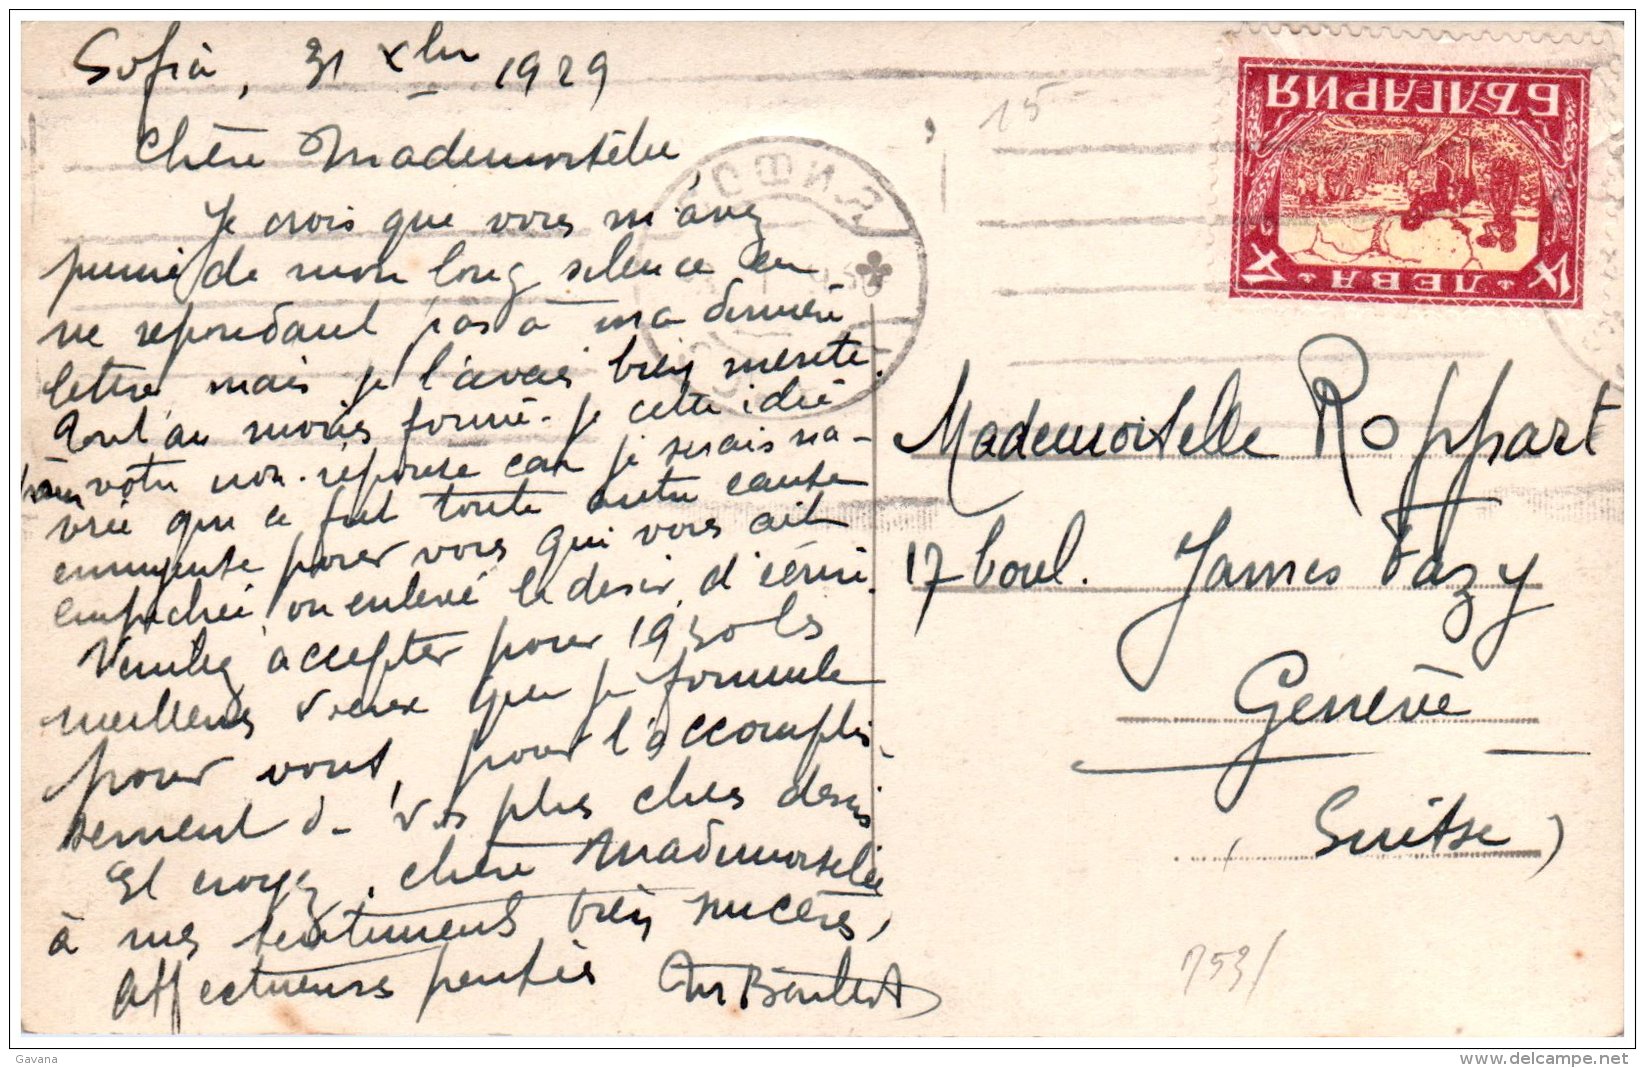 Sofia, 31 Xbre 1929
Chère Mademoiselle,
Je crois que vous m'avez
punie de mon long silence en
ne repondant pas à ma dernière
lettre mais je l'avais bien merité.
au moins formé-je cette idée
votre non-réponse car je serais na-
vrée que ce fut toute autre cause
ennuyeuse pour vous qui vous ait
empechée, ou enlevé le desir d'écrire.
Veuillez accepter pour 1930 les
meilleurs voeux que je formule
pour vous, pour l'accomplis-
sement de vos plus chers desirs
Et croyez, chère Mademoiselle
à mes sentiments bien sincères,
affectueuses pensées
15
БЪЛГАРИЯ
4 ЛЕВА 4
СОФИЯ
Mademoiselle Roppart
17 boul. James Fazy
Genève
(Suisse)
753/
Gavana
www.delcampe.net